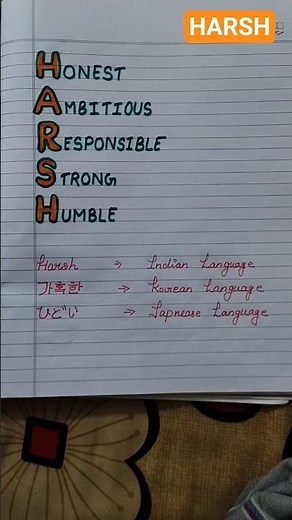 HARSH
HONEST
AMBITIOUS
RESPONSIBLE
STRONG
HUMBLE
Harsh → Indian Language
가혹한 → Korean Language
ひどい → Japnease Language